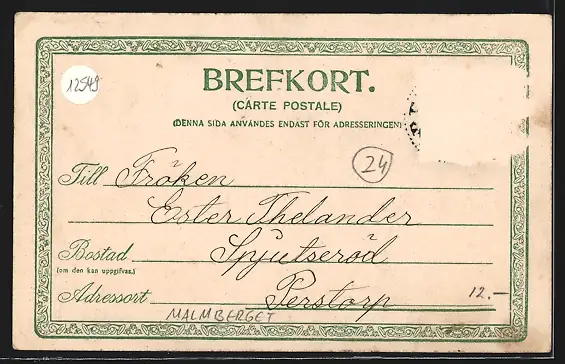 12549
BREFKORT.
(CARTE POSTALE)
(DENNA SIDA ANVÄNDES ENDAST FÖR ADRESSERINGEN)
24
Till Fröken
Ester Thelander
Bostad Spjutseröd
(om den kan uppgifvas.)
Adressort Perstorp 12.-
MALMBERGET